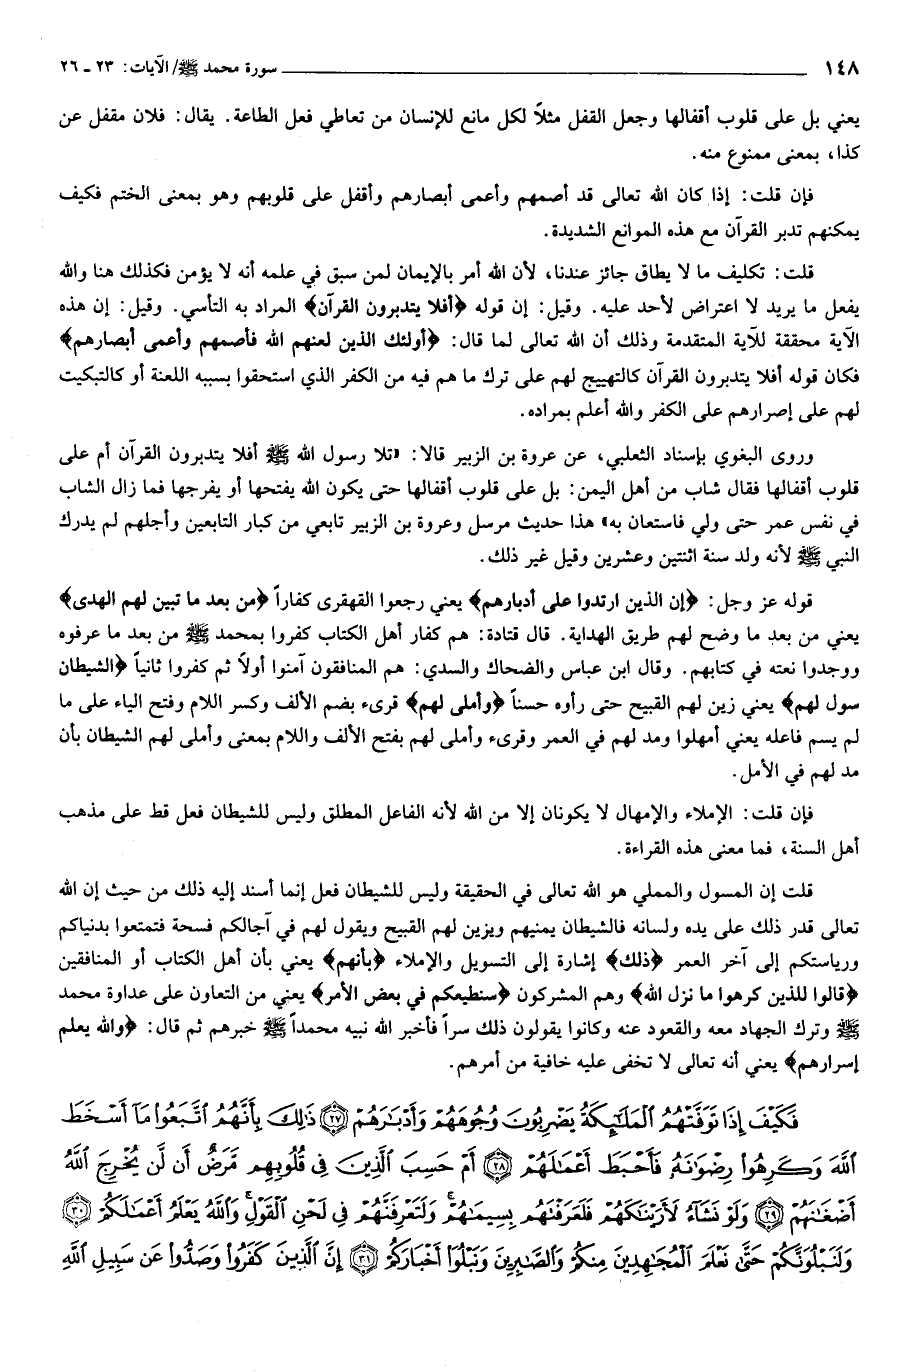 ١٤٨ ــــــــــــــــــــ سورة محمد ﷺ/ الآيات: ٢٣ ـ ٢٦
يعني بل على قلوب أقفالها وجعل القفل مثلاً لكل مانع للإنسان من تعاطي فعل الطاعة. يقال: فلان مقفل عن
كذا، بمعنى ممنوع منه.
فإن قلت: إذا كان الله تعالى قد أصمهم وأعمى أبصارهم وأقفل على قلوبهم وهو بمعنى الختم فكيف
يمكنهم تدبر القرآن مع هذه الموانع الشديدة.
قلت: تكليف ما لا يطاق جائز عندنا، لأن الله أمر بالإيمان لمن سبق في علمه أنه لا يؤمن فكذلك هنا والله
يفعل ما يريد لا اعتراض لأحد عليه. وقيل: إن قوله ﴿أفلا يتدبرون القرآن﴾ المراد به التأسي. وقيل: إن هذه
الآية محققة للآية المتقدمة وذلك أن الله تعالى لما قال: ﴿أولئك الذين لعنهم الله فأصمهم وأعمى أبصارهم﴾
فكان قوله أفلا يتدبرون القرآن كالتهييج لهم على ترك ما هم فيه من الكفر الذي استحقوا بسببه اللعنة أو كالتبكيت
لهم على إصرارهم على الكفر والله أعلم بمراده.
وروى البغوي بإسناد الثعلبي، عن عروة بن الزبير قالا: «تلا رسول الله ﷺ أفلا يتدبرون القرآن أم على
قلوب أقفالها فقال شاب من أهل اليمن: بل على قلوب أقفالها حتى يكون الله يفتحها أو يفرجها فما زال الشاب
في نفس عمر حتى ولي فاستعان به» هذا حديث مرسل وعروة بن الزبير تابعي من كبار التابعين وأجلهم لم يدرك
النبي ﷺ لأنه ولد سنة اثنتين وعشرين وقيل غير ذلك.
قوله عز وجل: ﴿إن الذين ارتدوا على أدبارهم﴾ يعني رجعوا القهقرى كفاراً ﴿من بعد ما تبين لهم الهدى﴾
يعني من بعد ما وضح لهم طريق الهداية. قال قتادة: هم كفار أهل الكتاب كفروا بمحمد ﷺ من بعد ما عرفوه
ووجدوا نعته في كتابهم. وقال ابن عباس والضحاك والسدي: هم المنافقون آمنوا أولاً ثم كفروا ثانياً ﴿الشيطان
سول لهم﴾ يعني زين لهم القبيح حتى رأوه حسناً ﴿وأملى لهم﴾ قرىء بضم الألف وكسر اللام وفتح الياء على ما
لم يسم فاعله يعني أمهلوا ومد لهم في العمر وقرىء وأملى لهم بفتح الألف واللام بمعنى وأملى لهم الشيطان بأن
مد لهم في الأمل.
فإن قلت: الإملاء والإمهال لا يكونان إلا من الله لأنه الفاعل المطلق وليس للشيطان فعل قط على مذهب
أهل السنة، فما معنى هذه القراءة.
قلت إن المسول والمملي هو الله تعالى في الحقيقة وليس للشيطان فعل إنما أسند إليه ذلك من حيث إن الله
تعالى قدر ذلك على يده ولسانه فالشيطان يمنيهم ويزين لهم القبيح ويقول لهم في آجالكم فسحة فتمتعوا بدنياكم
ورياستكم إلى آخر العمر ﴿ذلك﴾ إشارة إلى التسويل والإملاء ﴿بأنهم﴾ يعني بأن أهل الكتاب أو المنافقين
﴿قالوا للذين كرهوا ما نزل الله﴾ وهم المشركون ﴿سنطيعكم في بعض الأمر﴾ يعني من التعاون على عداوة محمد
ﷺ وترك الجهاد معه والقعود عنه وكانوا يقولون ذلك سراً فأخبر الله نبيه محمداً ﷺ خبرهم ثم قال: ﴿والله يعلم
إسرارهم﴾ يعني أنه تعالى لا تخفى عليه خافية من أمرهم.
فَكَيْفَ إِذَا تَوَفَّتْهُمُ الْمَلَائِكَةُ يَضْرِبُونَ وُجُوهَهُمْ وَأَدْبَارَهُمْ ﴿٢٧﴾ ذَلِكَ بِأَنَّهُمُ اتَّبَعُوا مَا أَسْخَطَ
اللَّهَ وَكَرِهُوا رِضْوَانَهُ فَأَحْبَطَ أَعْمَالَهُمْ ﴿٢٨﴾ أَمْ حَسِبَ الَّذِينَ فِي قُلُوبِهِم مَّرَضٌ أَن لَّن يُخْرِجَ اللَّهُ
أَضْغَانَهُمْ ﴿٢٩﴾ وَلَوْ نَشَاءُ لَأَرَيْنَاكَهُمْ فَلَعَرَفْتَهُم بِسِيمَاهُمْ وَلَتَعْرِفَنَّهُمْ فِي لَحْنِ الْقَوْلِ وَاللَّهُ يَعْلَمُ أَعْمَالَكُمْ ﴿٣٠﴾
وَلَنَبْلُوَنَّكُمْ حَتَّى نَعْلَمَ الْمُجَاهِدِينَ مِنكُمْ وَالصَّابِرِينَ وَنَبْلُوَا أَخْبَارَكُمْ ﴿٣١﴾ إِنَّ الَّذِينَ كَفَرُوا وَصَدُّوا عَن سَبِيلِ اللَّهِ